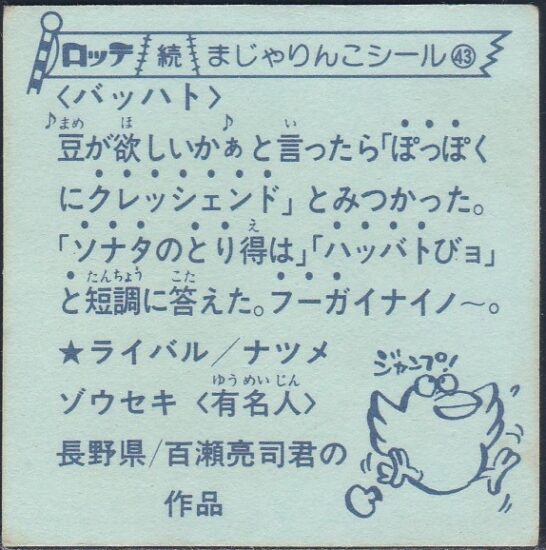 ロッテ 続 まじゃりんこシール㊸
〈バッハト〉
♪豆が欲しいかぁ♪と言ったら「ぽっぽく
にクレッシェンド」とみつかった。
「ソナタのとり得は」「ハッバトびョ」
と短調に答えた。フーガイナイノ〜。
★ライバル/ナツメ
ゾウセキ〈有名人〉
長野県/百瀬亮司君の
作品
ジャンプ!